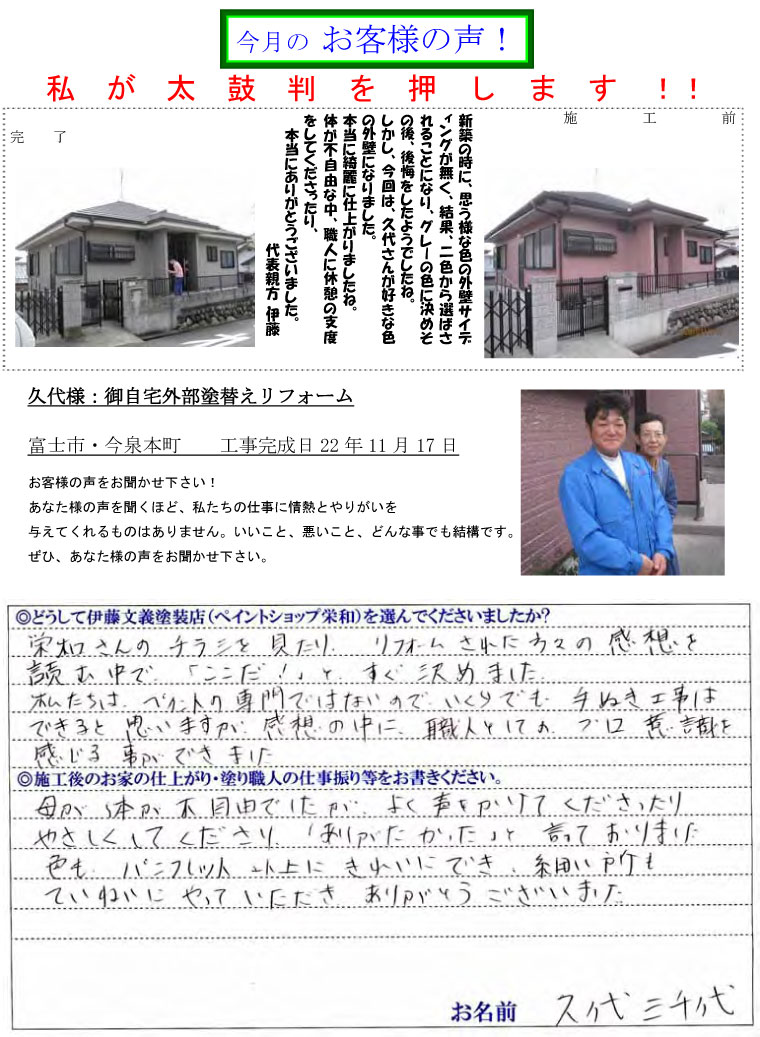 今月の お客様の声！
私が太鼓判を押します！！
施工前
完了
新築の時に、思う様な色の外壁サイデ
ィングが無く、結果、二色から選ばさ
れることになり、グレーの色に決めそ
の後、後悔をしたようでしたね。
しかし、今回は、久代さんが好きな色
の外壁になりました。
本当に綺麗に仕上がりましたね。
体が不自由な中、職人に休憩の支度
をしてくださったり、
本当にありがとうございました。
代表親方 伊藤
久代様：御自宅外部塗替えリフォーム
富士市・今泉本町 工事完成日 22 年 11 月 17 日
お客様の声をお聞かせ下さい！
あなた様の声を聞くほど、私たちの仕事に情熱とやりがいを
与えてくれるものはありません。いいこと、悪いこと、どんな事でも結構です。
ぜひ、あなた様の声をお聞かせ下さい。
◎どうして伊藤文義塗装店（ペイントショップ栄和）を選んでくださいましたか？
栄和さんのチラシを見たり、リフォームされた方々の感想を
読む中で、「ここだ！」と、すぐ決めました
私たちは、ペイントの専門ではないので、いくらでも、手ぬき工事は
できると思いますが、感想の中に、職人としての、プロ意識を
感じる事ができました
◎施工後のお家の仕上がり・塗り職人の仕事振り等をお書きください。
母が、体が不自由でしたが、よく声をかけてくださったり
やさしくしてくださり、「ありがたかった」と言っておりました
色も、パンフレット以上にきれいにでき、細い所も
ていねいにやっていただき ありがとうございました
お名前 久代三千代